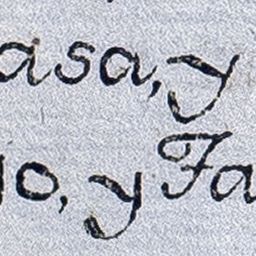 asa, y
o, y Fa